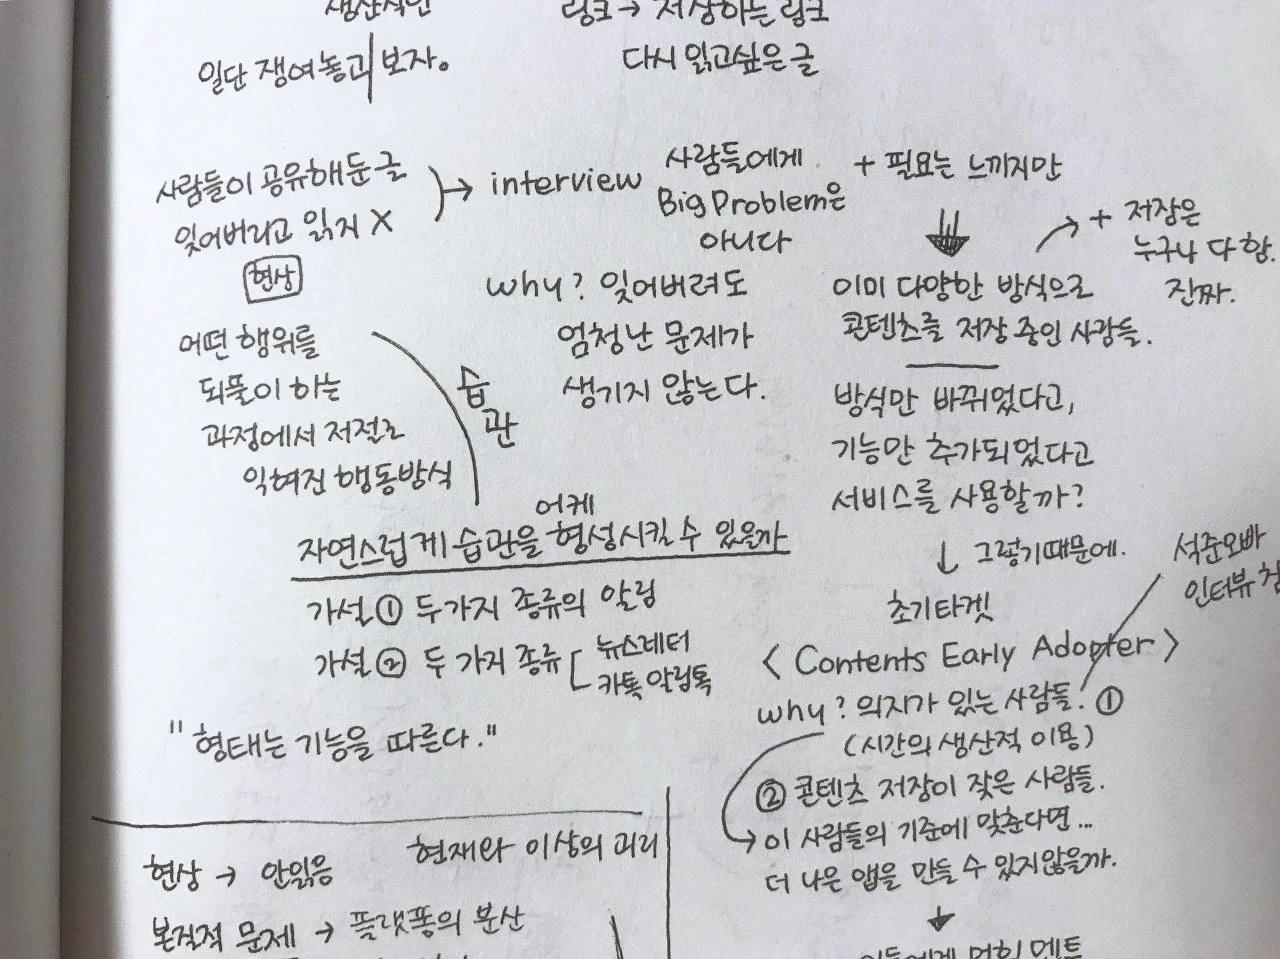 생산적인
일단 쟁여놓고 보자.
링크 → 저장하는 링크
다시 읽고싶은 글
사람들이 공유해둔 글
잊어버리고 읽지 X
현상
→ interview
사람들에게
Big Problem은
아니다
why? 잊어버려도
엄청난 문제가
생기지 않는다.
+ 필요는 느끼지만
이미 다양한 방식으로
콘텐츠를 저장 중인 사람들.
+ 저장은
누구나 다 함.
진짜.
방식만 바뀌었다고,
기능만 추가되었다고
서비스를 사용할까?
↓ 그렇기때문에.
초기타겟
< Contents Early Adopter >
석준오빠
인터뷰
why? 의지가 있는 사람들. ①
(시간의 생산적 이용)
② 콘텐츠 저장이 잦은 사람들.
→ 이 사람들의 기준에 맞춘다면...
더 나은 앱을 만들 수 있지않을까.
어떤 행위를
되풀이 하는
과정에서 저절로
익혀진 행동방식
습관
어케
자연스럽게 습관을 형성시킬 수 있을까
가설 ① 두가지 종류의 알림
가설 ② 두 가지 종류
뉴스레터
카톡 알림톡
"형태는 기능을 따른다."
현재와 이상의 괴리
현상 → 안읽음
본질적 문제 → 플랫폼의 분산